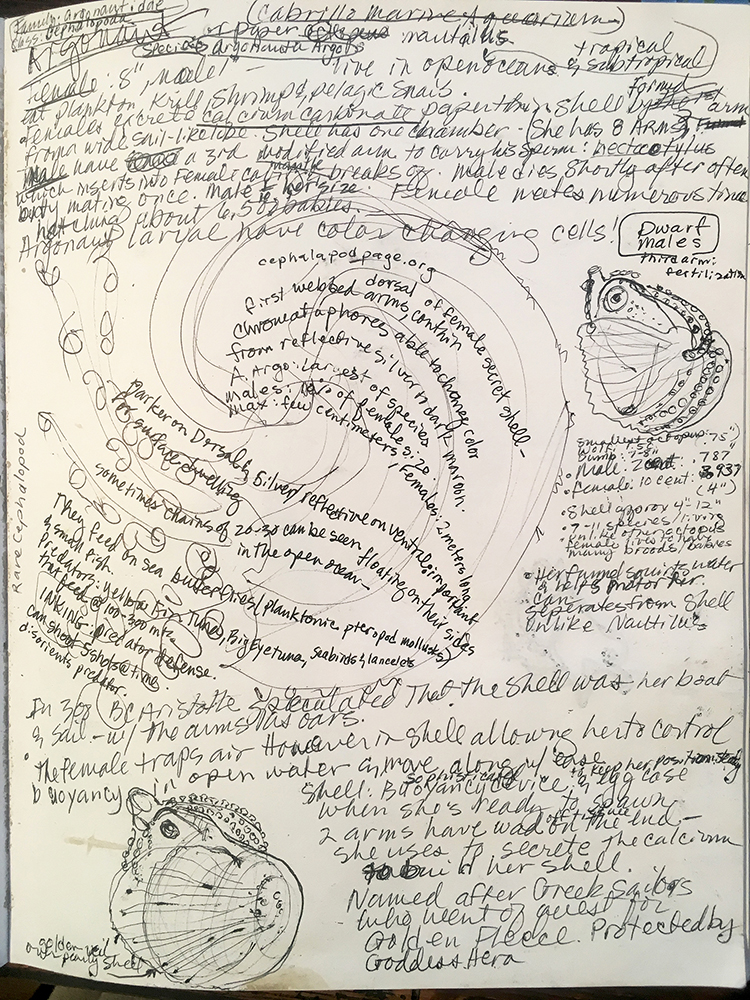 Family: Argonautidae
Class: Cephalopoda
(Cabrillo Marine Aquarium)
Argonaut or paper nautilus
Species Argonauta Argo
tropical
Female: 8", male 1" live in open oceans & subtropical
eat plankton, krill, shrimp, pelagic snail.
Formed
Females excrete calcium carbonate paperthin shell by 1st arm
from a wide sail-like lobe. Shell has one chamber - She has 8 ARMS
Male have a 3rd modified arm to carry his sperm: hectocotylus
mantle
which inserts into Female cavity & breaks off. male dies shortly after often
only mating once. Male her size. Female mates numerous time
hatchling about 6,500 babies
Argonaut larvae have color changing cells!
Dwarf
males
third arm:
fertilization
cephalopodpage.org
first webbed dorsal of female secret shell-
arms contain
chromataphores able to change color
from reflective silver to dark maroon.
A. Argo: largest of species
males: of females: 20.
max: few centimeters
Females: 2 meters long
Marker on Dorsal & Silver/reflective on ventral important
for surface dwelling
sometimes chains of 20-30 can be seen floating on their sides
in the open ocean-
They feed on sea butterflies (planktonic pteropod mollusks)
& small fish
Predators: Yellow Fin Tuna, Big Eye tuna, seabirds, lancelets
that feed @ 100-300 mtrs
INKING: predator defense.
can shoot 5 shots @ time
disorients predator.
Rare Cephalopod
smallest octopus: (.75")
Wolfi: 1.5 c
Dumb: 7-8" 787
Male: 2 cent. 3937
Female: 10 cent. (4")
Shell approx 4"-12"
7-11 species/living
unlike other octopus
female lives to have
many broods/babies
Her funnel squirts water
& helps motor her.
Can
seperates from shell
unlike Nautilus
In 300 BC Aristotle speculated that the shell was her boat
& sail - w/ the arms as oars.
The female traps air However in shell allowing her to control
buoyancy in open water & move along w/ ease
sophisticated to keep her position steady
Shell: Buoyancy device & egg case
when she's ready to spawn
2 arms have wad on the end -
of tissue
she uses to secrete the calcium
to build her shell.
Named after Greek Sailors
who went of quest for
Golden Fleece. Protected by
Goddess Hera
golden veil
over pearly shell